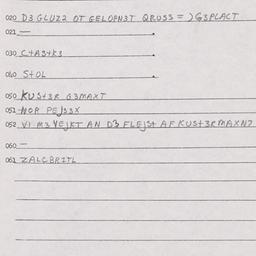 020 D3 GLUZ2 OT GELOFN3T QRUSS = JG3PLACT
021 —
030 C+A3+K3
040 S+OL
050 KUS+3R G3MAXT
051 HOR PEJ33X
052 VI M3 VEJKT AN D3 FLEJS+ AF KUS+3RMAXN7
060 —
061 ZALCBRITL